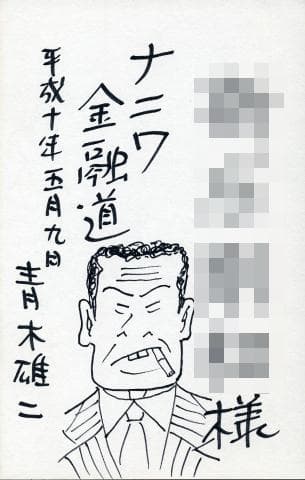 様
ナニワ
金融道
平成十年五月九日
青木雄二